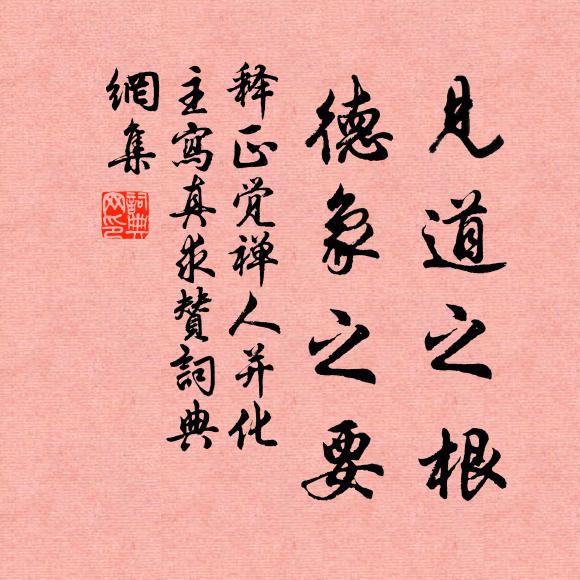 見道之根
德象之要
释正觉禅人并化
主寫真求賛詞典
網集
詞典網印